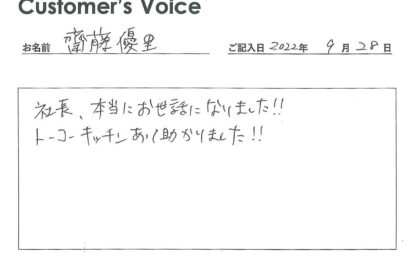 Customer's Voice
お名前 齋藤優里 ご記入日 2022年 9月28日
社長、本当にお世話になりました!!
トーコーキッチンあって助かりました!!